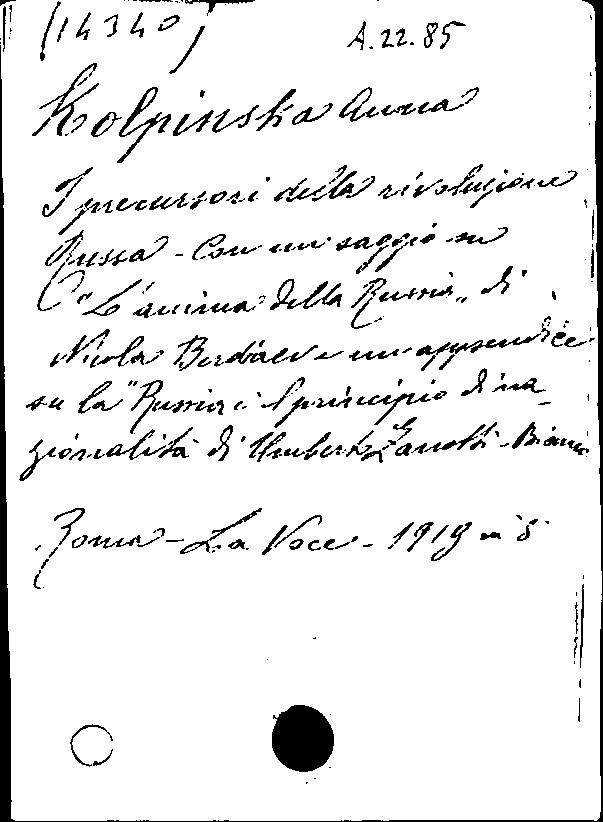 (14340)
A.22.85
Kolpinska Anna
I precursori della rivoluzione
Russa - Con un saggio su
"L'anima della Russia" di
Nicola Berdiaev e un appendice
su la "Russia e il principio di na-
zionalità di Umberto Zanotti-Bianco
Roma - La Voce - 1919 in 8